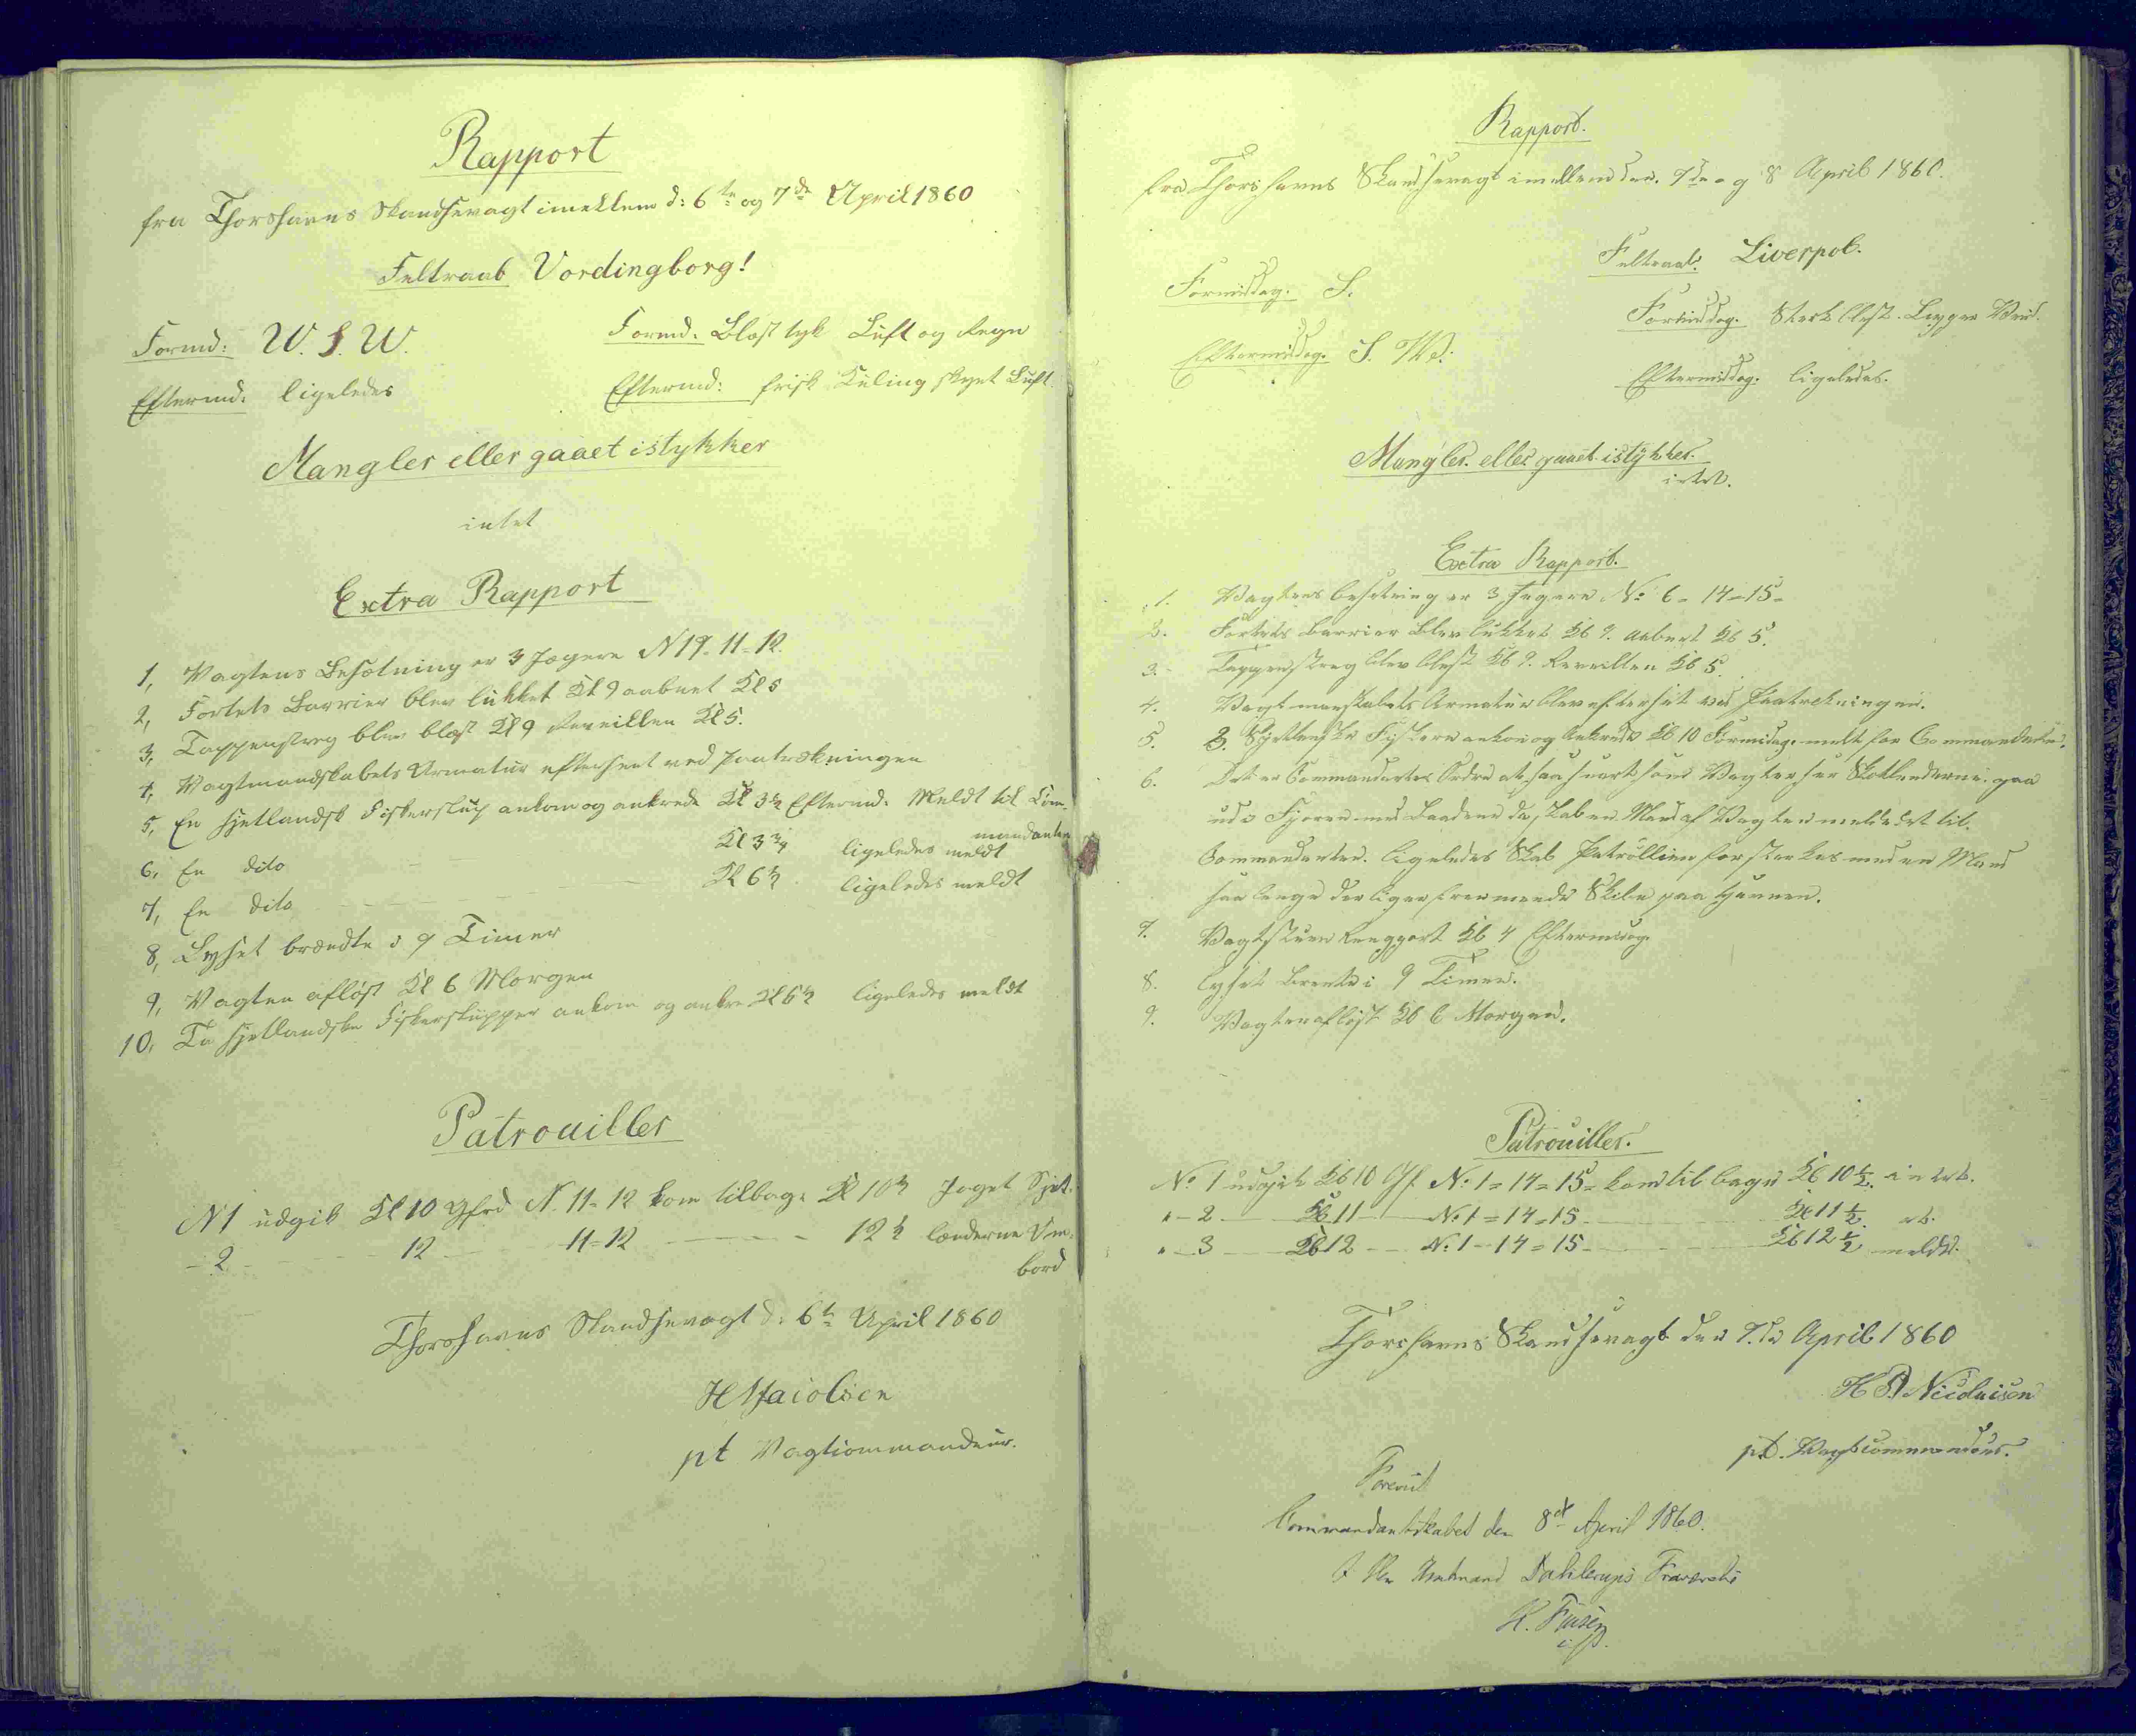 Rapport
fra Thorshavns Skandsevagt imellem d: 6te og 7de April 1860
Feltraab Vordingborg!
Formd: W. S. W.
Formd. Blæst tyk Luft og Regn
Eftermd. ligeledes
Eftermd: frisk Kuling skyet Luft.
Mangler eller gaaet istykker
intet
Extra Rapport
1, Vagtens Besætning er 3 Jægere N 19-11-12.
2, Fortets Barrier blev lukket Kl 9 aabnet Kl 5
3, Tappenstreg blev blæst Kl 9 Reveillen Kl 5.
4, Vagtmandskabets Armatur efterseet ved Paatrækningen
5, En hjetlandsk Fiskerslup ankom og ankrede Kl 3½ Eftermd. Meldt til Com-
mandanten
6, En dito Kl 3¾ ligeledes meldt
7, En dito Kl 6½ ligeledes meldt
8, Lyset brændte i 9 Timer
9, Vagten afløst Kl 6 Morgen
10, To hjetlandske Fiskerslupper ankom og ankre Kl 6½ ligeledes meldt
Patrouiller
N 1 udgik Kl 10 N. 11-12 kom tilbage Kl 10½ Jaget Hjet-
- 2 12 11-12 12½ lænderne Om-
bord
Thorshavns Skandsevagt d: 6te April 1860
pt Vagtcommandeur.
Rapport.
fra Thorshavns Skandsevagt imellem den. 7de og 8 April 1860.
Feltraab. Liverpol.
Formiddag. S.
Formiddag. Sterk Blest. Regn
Eftermiddag. S. W.
Eftermiddag. ligeledes.
Mangler. eller gaaet istykker.
intet.
Extra Rapport.
1. Vagtens besetning er 3 Jegere No 6-14-15-
2. Fortets Barrier blev lukket Kl 9. aabnet Kl 5.
3. Tappenstreg blev blest Kl 9. Reveillen Kl 5.
4. Vagtmanskabets Armatur blev efterset ved Paatrekningen.
5. 3. Hjetlenske Fiskere ankom og ankrede Kl 10 Formidag. melt for Commandanten.
6. Det er Commandantes Ordre at saa snart som Vagten ser Skotlenderne. gaa
ud i Fjoren med Baadene da skal en Mand af Vagten melde det til.
Commandanten. ligeledes Skal Patrollien forsterkes med en Mand
saa lenge der liger fremmende Skibe paa Havnen.
7. Vagtstuen Rengjort Kl 4 Eftermidag.
8. Lyset brente i 9 Timer.
9. Vagten afløst Kl 6 Morgen.
Patrouiller.
No 1 udgik Kl 10 No 1=14=15= kom til bage Kl 10½. intet.
" - 2 Kl 11 No 1=14=15 Kl 11½. at.
" - 3 Kl 12 No 1-14=15 Kl 12½ melde.
Thorshavns Skandsevagt den 7.de April 1860
H D Nicolaisen
pt. Vagtcommandeur.
Foreviist
Commandantskabet den 8de April 1860.
I Hr Amtmand Dahlerups Fraværelse